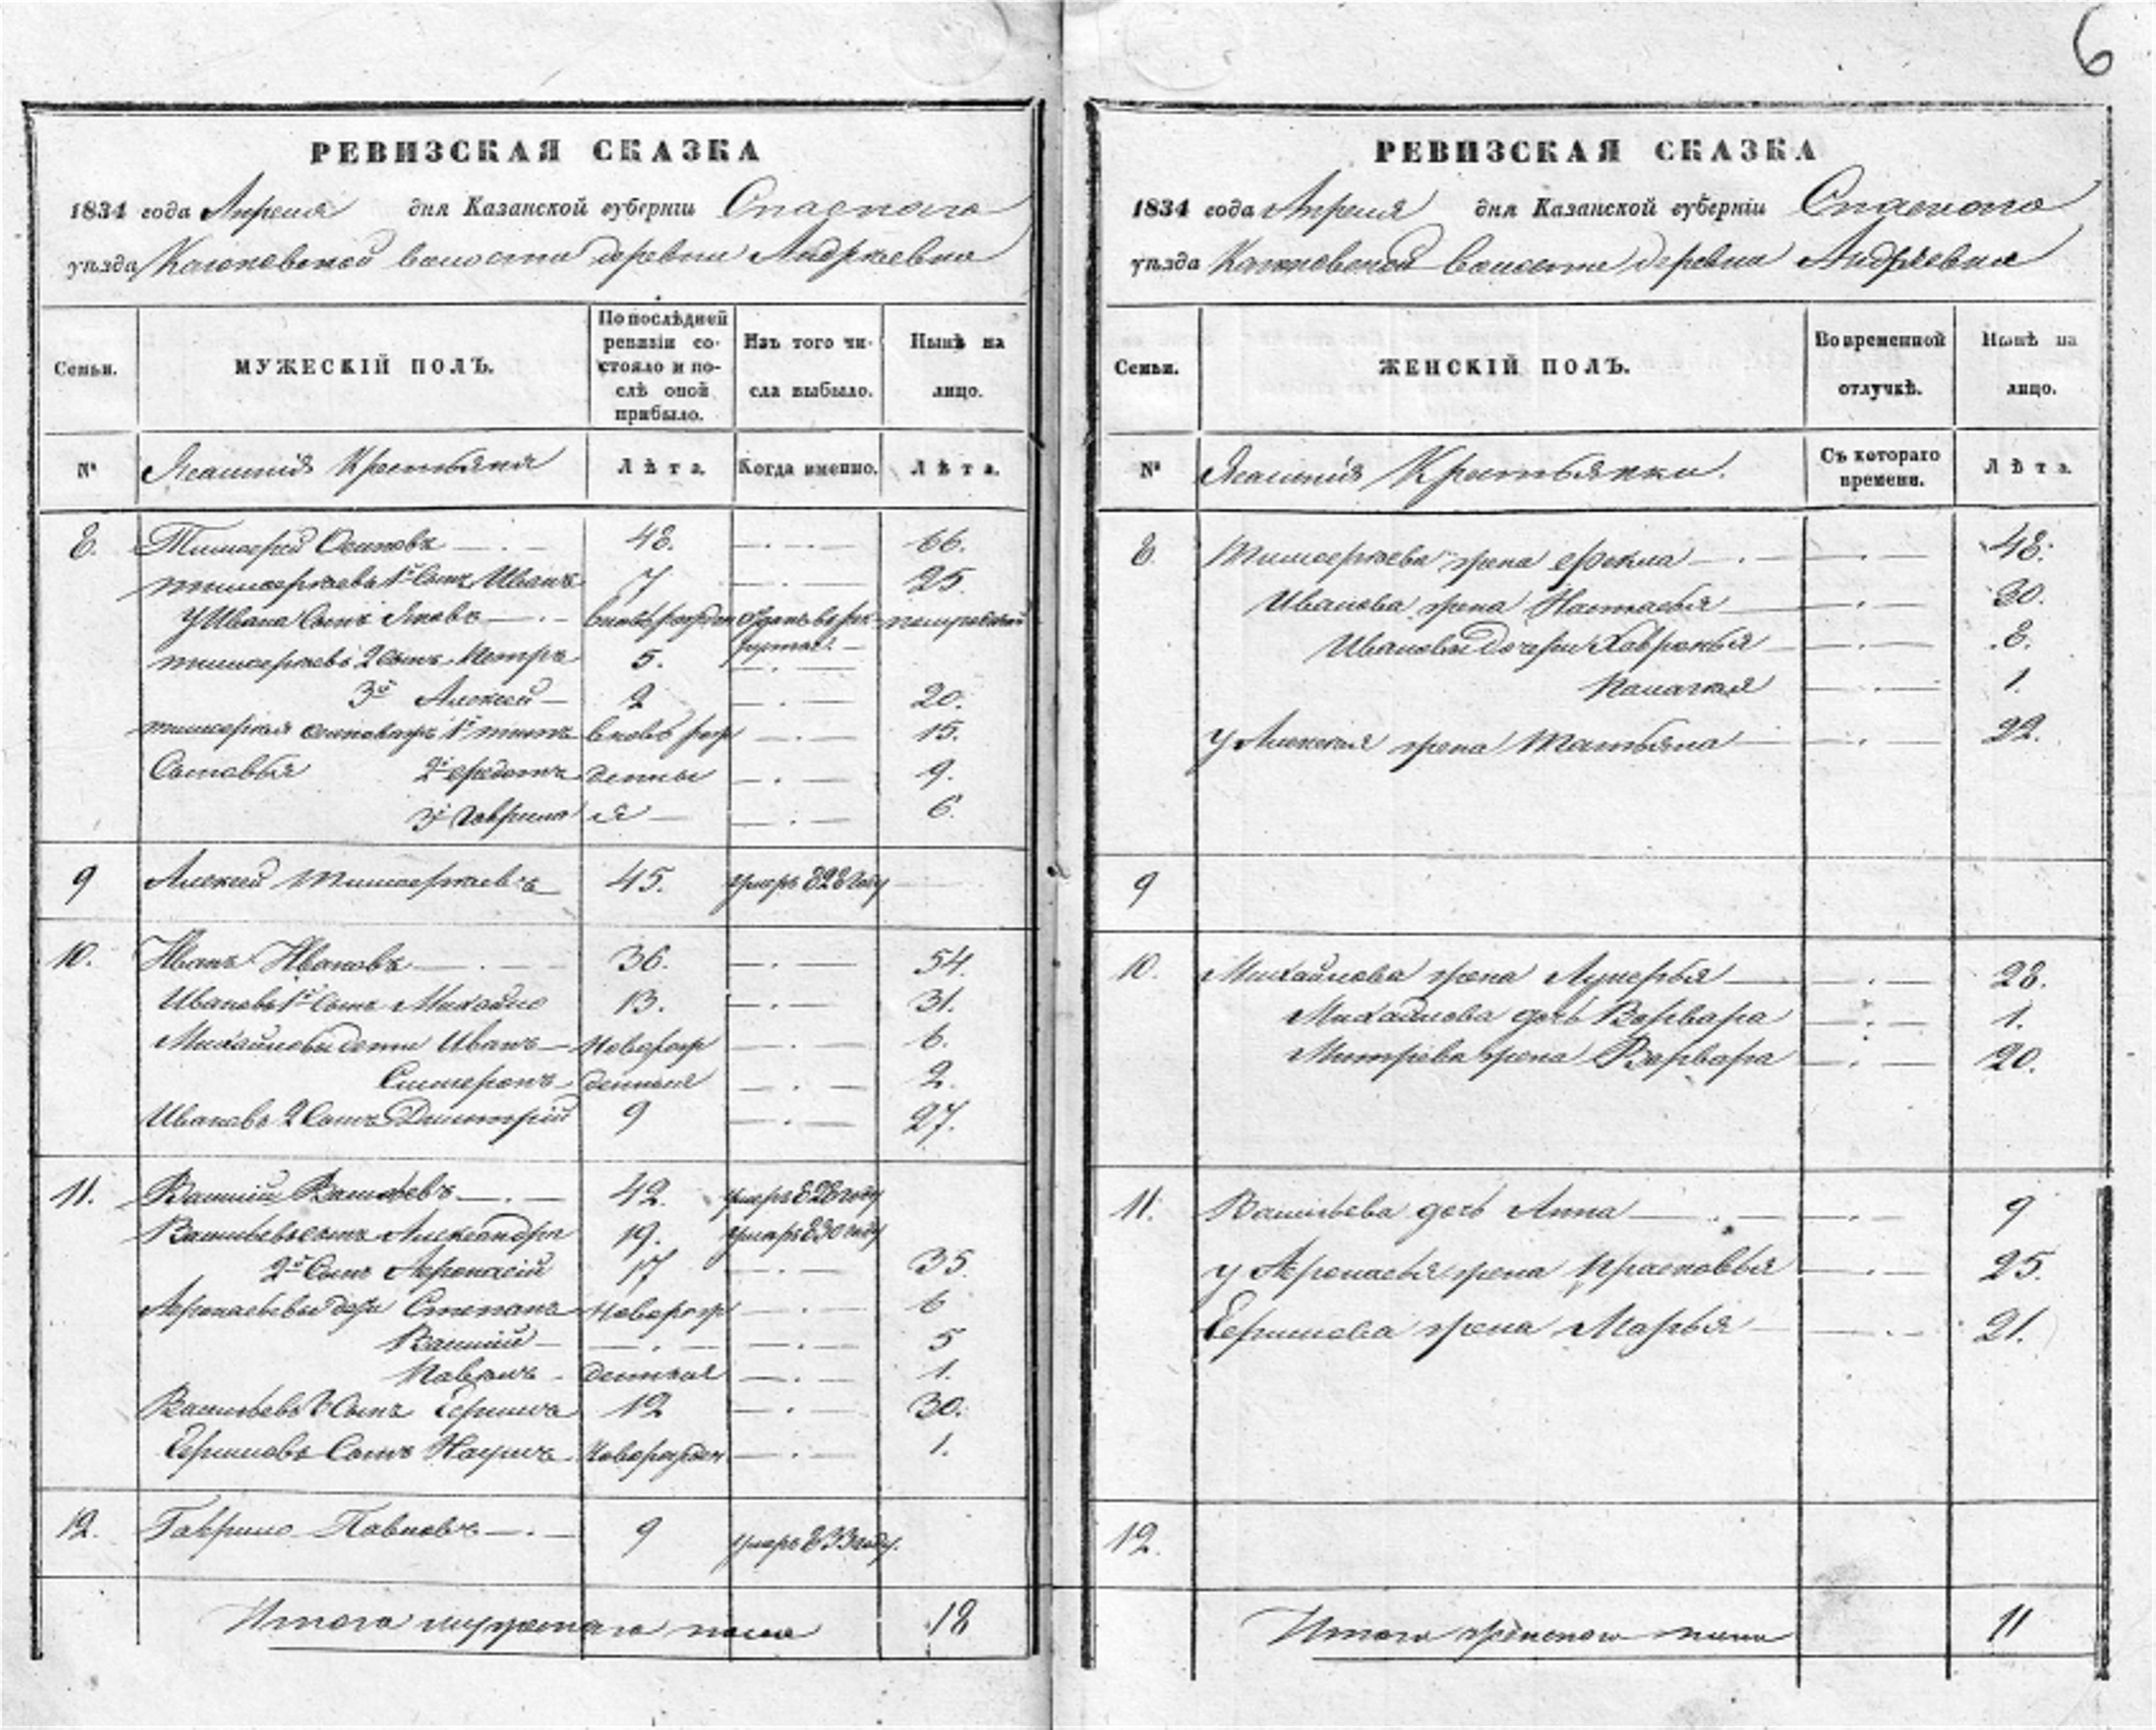 6
РЕВИЗСКАЯ СКАЗКА
1834 года Апреля дня Казанской губернiи Спаскаго
уѣзда волости деревни Андреевки
Семьи.
МУЖЕСКIЙ ПОЛЪ.
По послѣдней ревизiи состояло и послѣ оной прибыло.
Изъ того числа выбыло.
Нынѣ на лицо.
№ Ясашнiя Крестьяня Лѣта. Когда именно. Лѣта.
8. Тимофей Осиповъ 48. 66.
Тимофеевъ 1й Сынъ Иванъ 7 25.
У Ивана Сынъ Яковъ вновь рожден
Тимофеевъ 2 Сынъ Петръ 5.
3й Алексей 2 20.
Тимофея Осиповыхъ 1й вновь рож 15.
Сыновья 2й Федотъ денны 9.
3й Гаврила я 6.
9 Алексей Тимофеевъ 45. умеръ 828 году
10. Иванъ Ивановъ 36. 54.
Ивановъ 1й Сынъ Михайло 13. 31.
Михайловы дети Иванъ Коворож 6.
денныя 2.
Ивановъ 2 Сынъ Димитрiй 9 27.
11. Василiй Васильевъ 42. умеръ 828 году
Васильевъ сынъ Александръ 19. умеръ 830 году
2й Сынъ Афонасiй 17 35.
Афонасьевы дети Степанъ Новорож 6
Василiй 5
денныя 1.
Васильевъ Сынъ Ефимъ 12 30.
Ефимовъ Сынъ Наумъ Новорожден 1.
12. Гаврило Павловъ 9 умеръ 833 году.
Итого мужескаго пола 18
РЕВИЗСКАЯ СКАЗКА
1834 года Апреля дня Казанской губернiи Спаскаго
уѣзда волости деревни Андреевки
Семьи.
ЖЕНСКIЙ ПОЛЪ.
Во временной отлучкѣ.
Нынѣ на лицо.
№ Ясашнiя Крестьянки. Съ котораго времени. Лѣта.
8 Тимофеева жена Фекла 48.
Иванова жена Настасья 30.
Ивановы дочери Хавронья 8.
Палагея 1.
у Алексея жена Татьяна 22.
9
10. Михайлова жена Лукерья 28.
Михайлова дочь Варвара 1.
Митрева жена Варвара 20.
11. Васильева дочь Анна 9
у Афонасья жена Прасковья 25.
Ефимова жена Марья 21.
12.
Итого женского пола 11